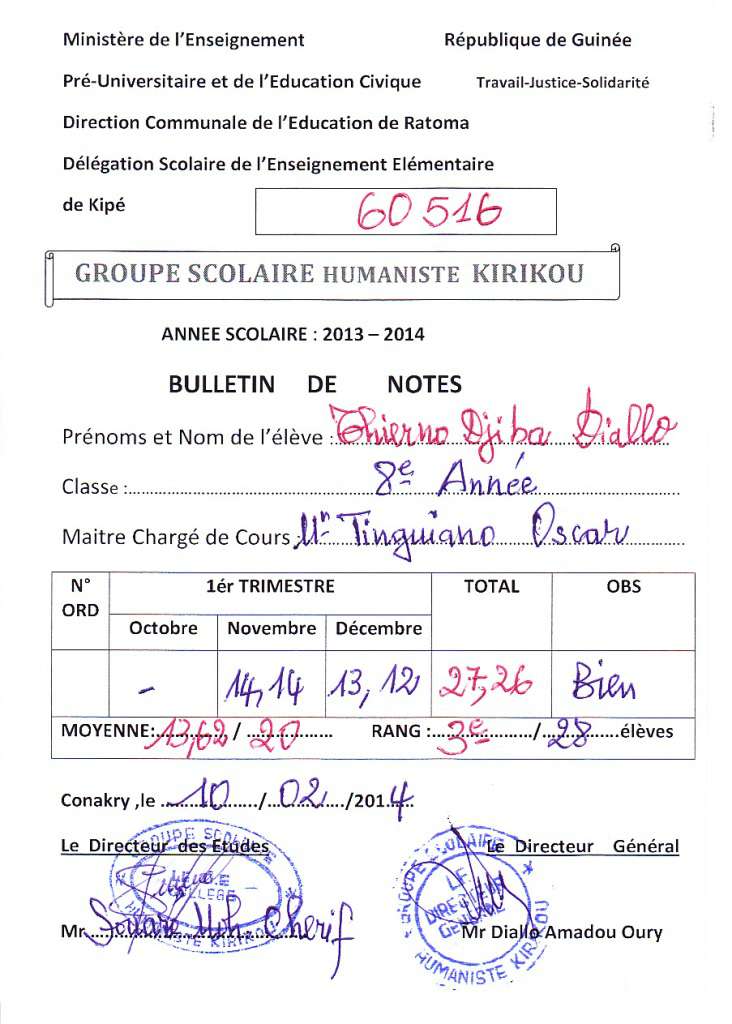 Ministère de l'Enseignement République de Guinée
Pré-Universitaire et de l'Education Civique Travail-Justice-Solidarité
Direction Communale de l'Education de Ratoma
Délégation Scolaire de l'Enseignement Elémentaire
de Kipé 60 516
GROUPE SCOLAIRE HUMANISTE KIRIKOU
ANNEE SCOLAIRE : 2013 – 2014
BULLETIN DE NOTES
Prénoms et Nom de l'élève : Thierno Djiba Diallo
Classe : 8e Année
Maitre Chargé de Cours : Mr Tinguiano Oscar
N° ORD 1ér TRIMESTRE TOTAL OBS
Octobre Novembre Décembre
- 14,14 13,12 27,26 Bien
MOYENNE: 13,62 / 20 RANG : 3e / 28 élèves
Conakry ,le 10 / 02 /2014
Le Directeur des Etudes Le Directeur Général
GROUPE SCOLAIRE
COLLEGE
HUMANISTE KIRIKOU
GROUPE SCOLAIRE
LE
DIRECTEUR
GENERAL
HUMANISTE KIRIKOU
Mr Cherif Mr Diallo Amadou Oury